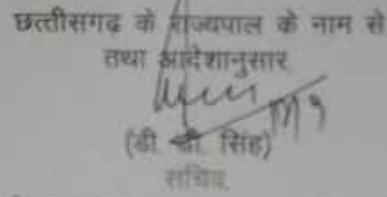 छत्तीसगढ़ के राज्यपाल के नाम से
तथा आदेशानुसार
(डी. सिंह)
सचिव